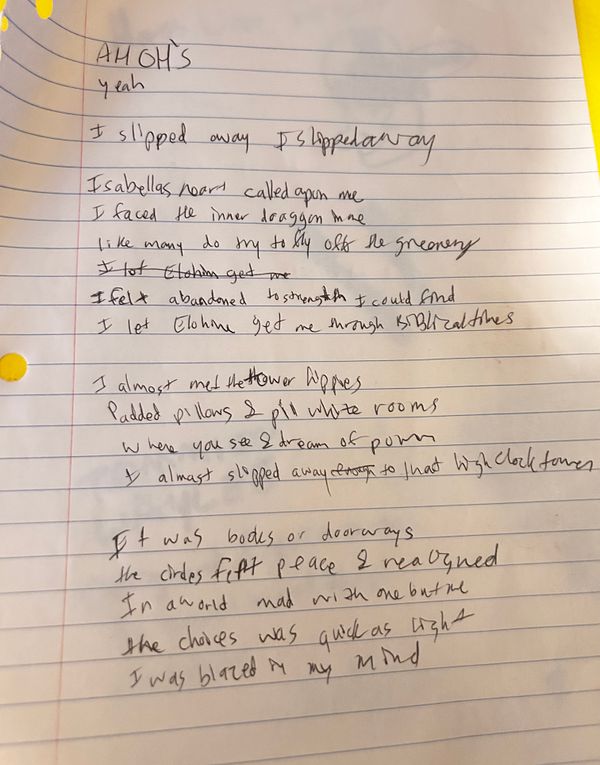 AHOH'S
yeah
I slipped away I slipped away
Isabellas called apon me
I faced the inner draggon in me
like many do try to fly off the greenery
I let Elohim get me
I felt abandoned to strength I could find
I let Elohim get me through BiBlical times
I almost met the tower hippies
Padded pillows & pill white rooms
where you see & dream of
I almast slipped away enough to that high clock tower
It was bodies or doorways
the circles felt peace &
In a world mad with one but me
the choices was quick as light
I was blazed in my mind